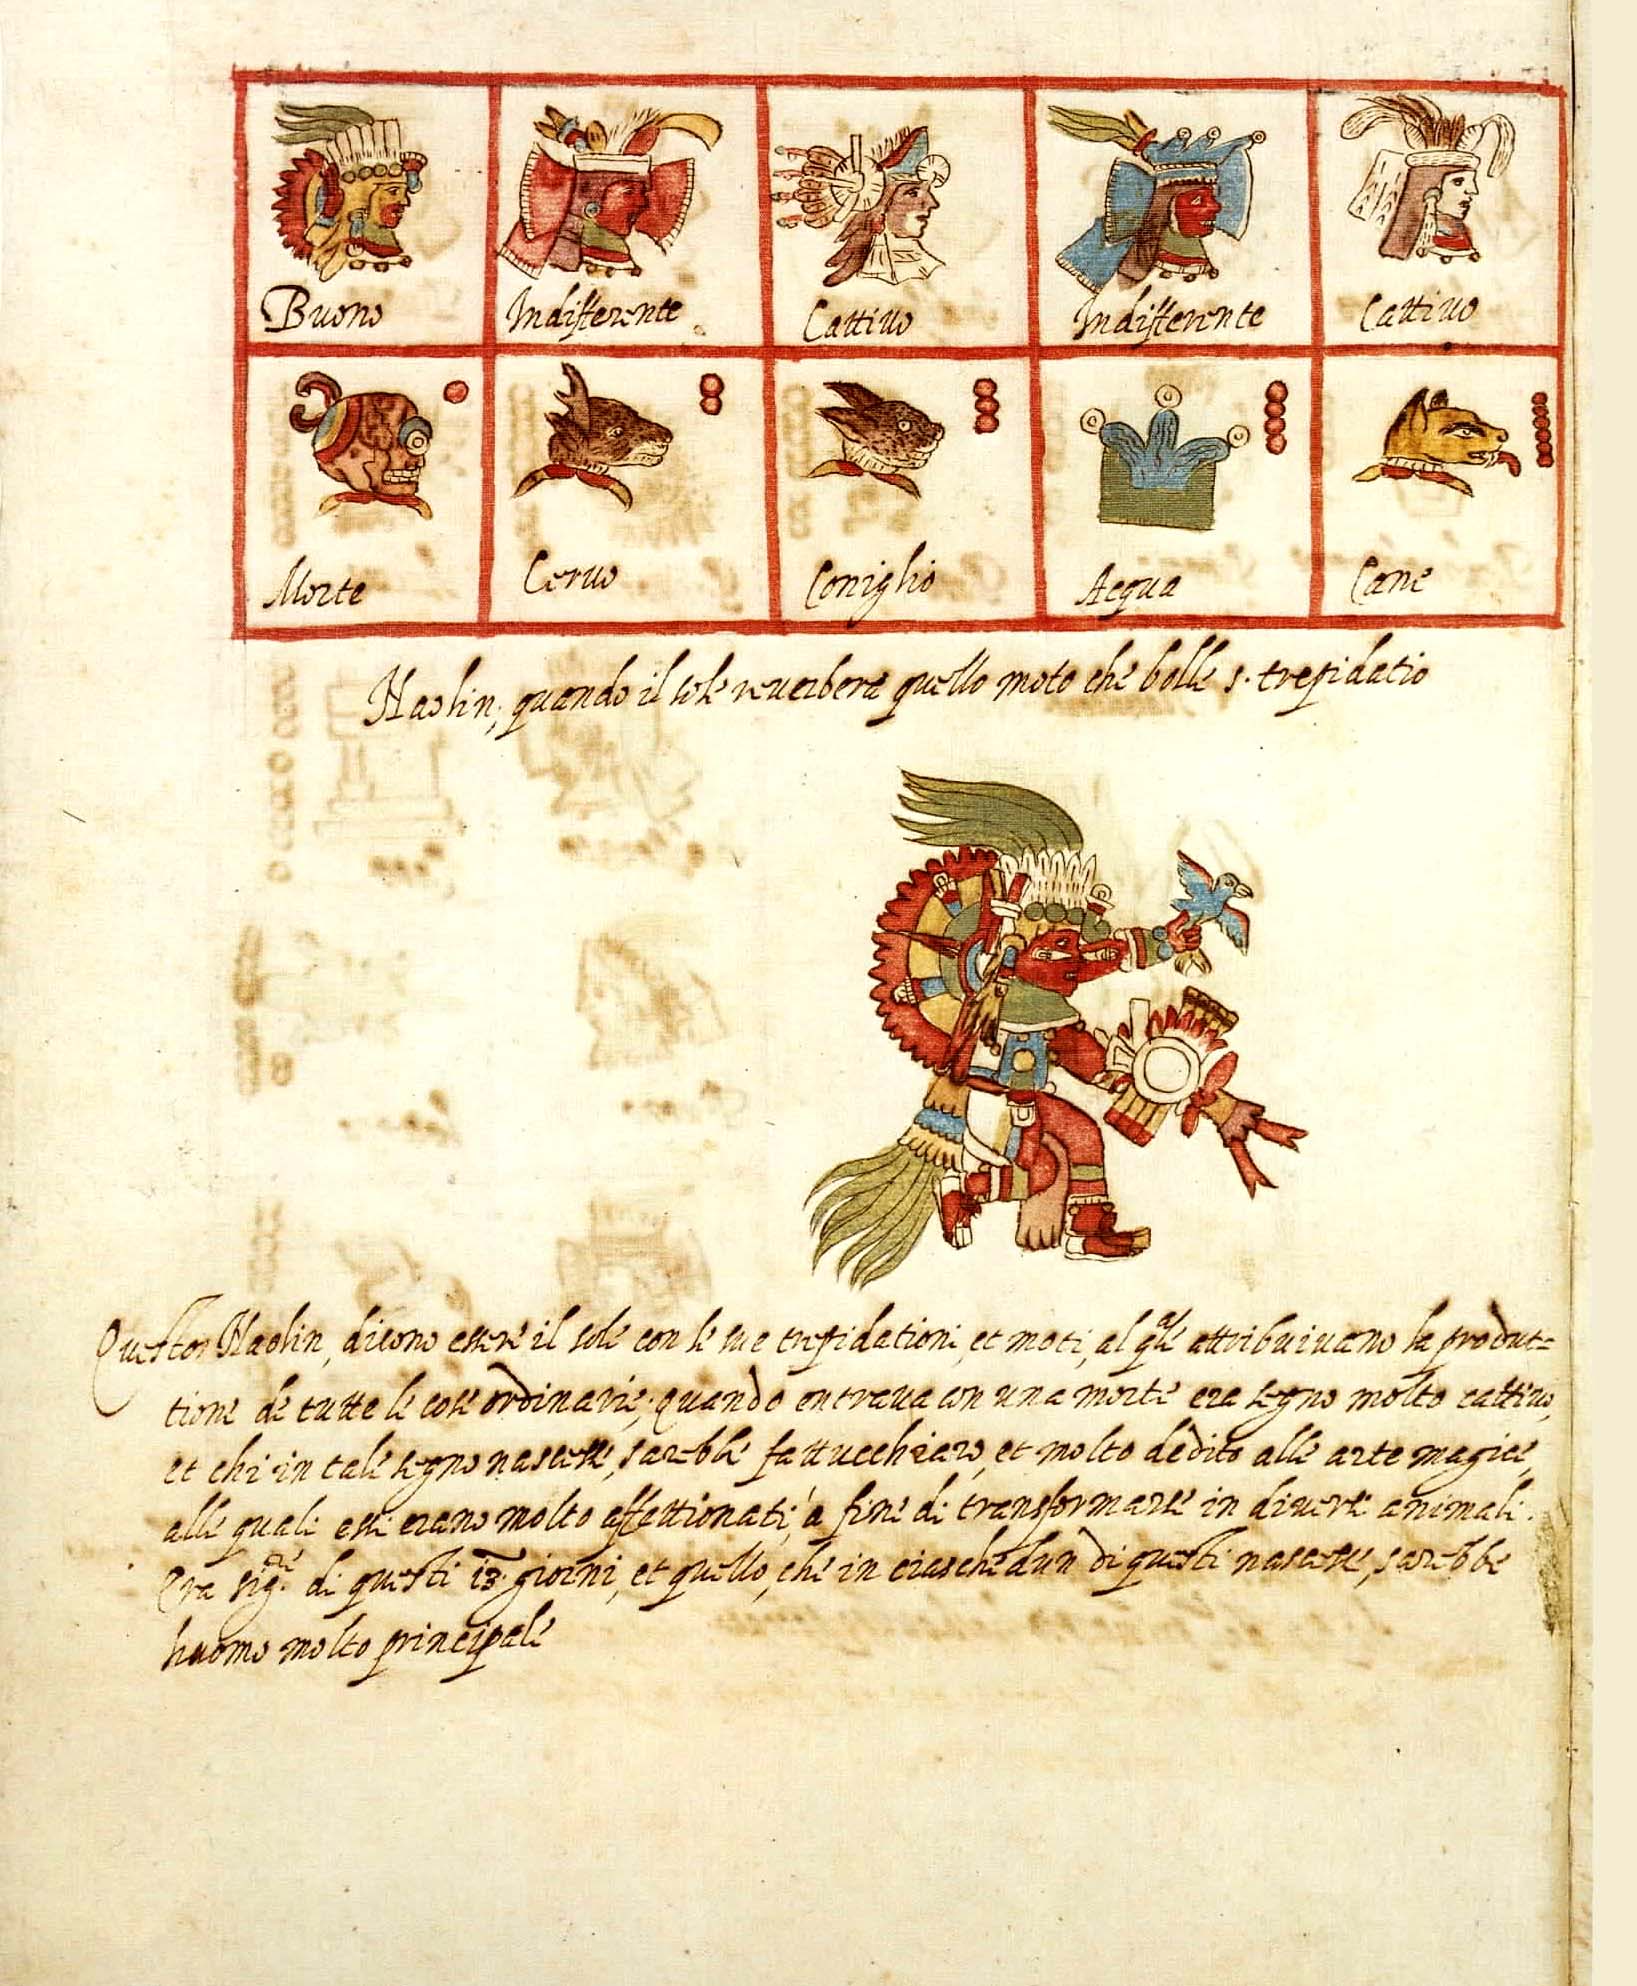 Buono Indifferente Cattiuo Indifferente Cattiuo
Morte Ceruo Coniglio Acqua Cane
Naolin, quando il sole reuerbera quello moto che bolle s. trepidatio
Questo Naolin, dicono essere il sole con le sue trepidationi, et moti, al qale attribuiuano la produt=
tione de tutte le cose ordinarie; quando entraua con una morte era segno molto cattiuo,
et chi in tale segno nascesse, sarebbe fattucchiaro, et molto dedito alle arte magice,
alle quali essi erano molto affettionati, à fine di transformarse in diuerse animali.
Era sig.re di questi 13. giorni, et quello, che in ciaschedun di questi nascesse, sarebbe
huomo molto principale